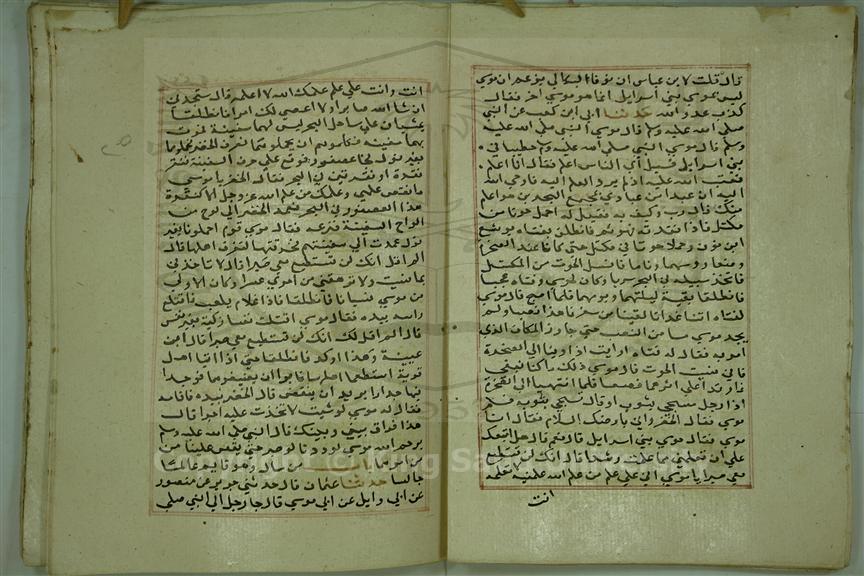 قال قلت لابن عباس ان نوفا البكالي يزعم ان موسى
ليس بموسى بني اسرايل انما هو موسى اخر فقال
كذب عدو الله حدثنا ابي ابن كعب عن النبي
صلى الله عليه وسلم قال موسى النبي صلى الله عليه
وسلم قال موسى النبي صلى الله عليه وسلم خطيبا في
بني اسرايل فسيل أي الناس اعلم فقال انا اعلم
فعتب الله عليه اذ لم يرد العلم اليه فاوحى الله
اليه ان عبدا من عبادي بمجمع البحرين هو اعلم
منك قال رب وكيف به فقيل له احمل حوتا من
مكتل فاذا فقدته فهو ثم فانطلق بفتاه يوشع
ابن نون وحملا حوتا في مكتل حتى كانا عند الصخرة
وضعا روسهما وناما فانسل الحوت من المكتل
فاتخذ سبيله في البحر سربا وكان لموسى وفتاه عجبا
فانطلقا بقية ليلتهما ويومهما فلما اصبح قال موسى
لفتاه اتنا غدانا لقينا من سفرنا هذا نصبا ولم
يجد موسى مسا من النصب حتى جاوز المكان الذي
امر به فقال له فتاه ارايت اذ اوينا الى الصخرة
فاني نسيت الحوت قال موسى ذلك ما كنا نبغي
فارتدا على اثرهما قصصا فلما انتهيا الى الصخرة
اذا رجل مسجى بثوب او قال تسجى بثوبه فسلم
موسى فقال الخضر واني بارضك السلام فقال انا
موسى فقال موسى بني اسرايل قال نعم قال هل اتبعك
على ان تعلمني مما علمت رشدا قال انك لن تستطيع
معي صبرا يا موسى اني على علم من علم الله علمنيه لا تعلمه
انت
انت وانت على علم علمك الله لا اعلمه قال ستجدني
ان شا الله صابرا ولا اعصي لك امرا فانطلقا
يمشيان على ساحل البحر ليس لهما سفينة فمرت
بهما سفينة فكلموهم ان يحملوهما فعرف الخضر فحملوهما
بغير نول فجا عصفور فوقع على حرف السفينة فنقر
نقرة او نقرتين في البحر فقال الخضر يا موسى
ما نقص علمي وعلمك من علم الله عز وجل الا كنقرة
هذا العصفور في البحر فعمد الخضر الى لوح من
الواح السفينة فنزعه فقال موسى قوم حملونا بغير
نول عمدت الى سفينتهم فخرقتها لتغرق اهلها قال
الم اقل انك لن تستطيع معي صبرا قال لا تواخذني
بما نسيت ولا ترهقني من امري عسرا وكان الاولى
من موسى نسيانا فانطلقا فاذا غلام يلعب فاقتلع
راسه بيده فقال موسى اقتلت نفسا زكية بغير نفس
قال الم اقل لك انك لن تستطيع معي صبرا قال ابن
عيينة وهذا اوكد فانطلقا حتى اذا اتيا اهل
قرية استطعما اهلها فابوا ان يضيفوهما فوجدا
فيها جدارا يريد ان ينقض قال الخضر بيده فاقامه
فقال له موسى لو شيت لاتخذت عليه اجرا قال
هذا فراق بيني وبينك قال النبي صلى الله عليه وسلم
يرحم الله موسى لوددنا لو صبر حتى يقص علينا من
من امرهما باب من سال وهو قايم عالما
جالسا حدثنا عثمان قال حدثني جرير عن منصور
عن ابي وايل عن ابي موسى قال جا رجل الى النبي صلى